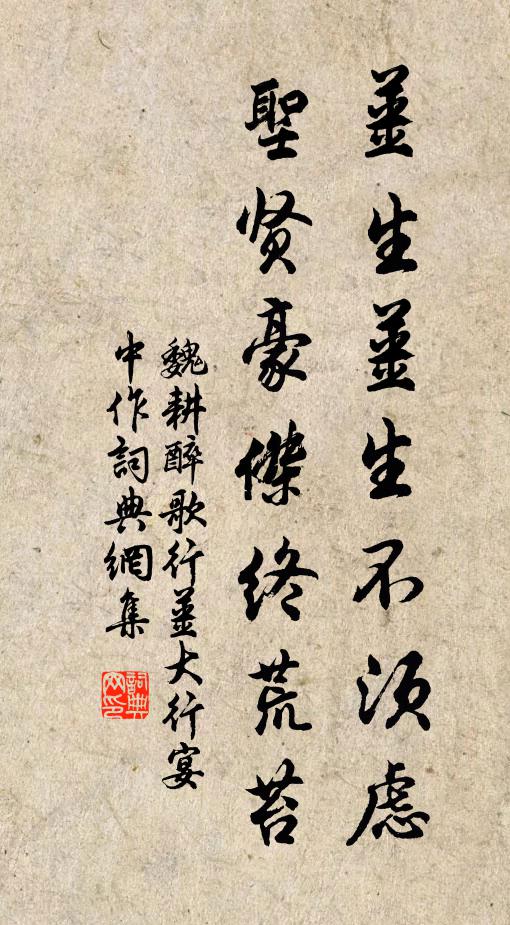 薑生薑生不須慮
聖贤豪傑終荒苔
魏耕醉歌行薑大行宴
中作詞典網集
詞典
网印